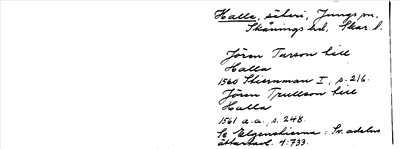 Halla, säteri, Jungs sn,
Skånings hd, Skar. l.
Jöran Turson till
Halla
1560 Stiernman I, s. 216.
Jöran Trullson till
Halla
1561 a.a., s. 248.
Se Elgenstierna: Sv. adelns
ättartavl. 4:733.